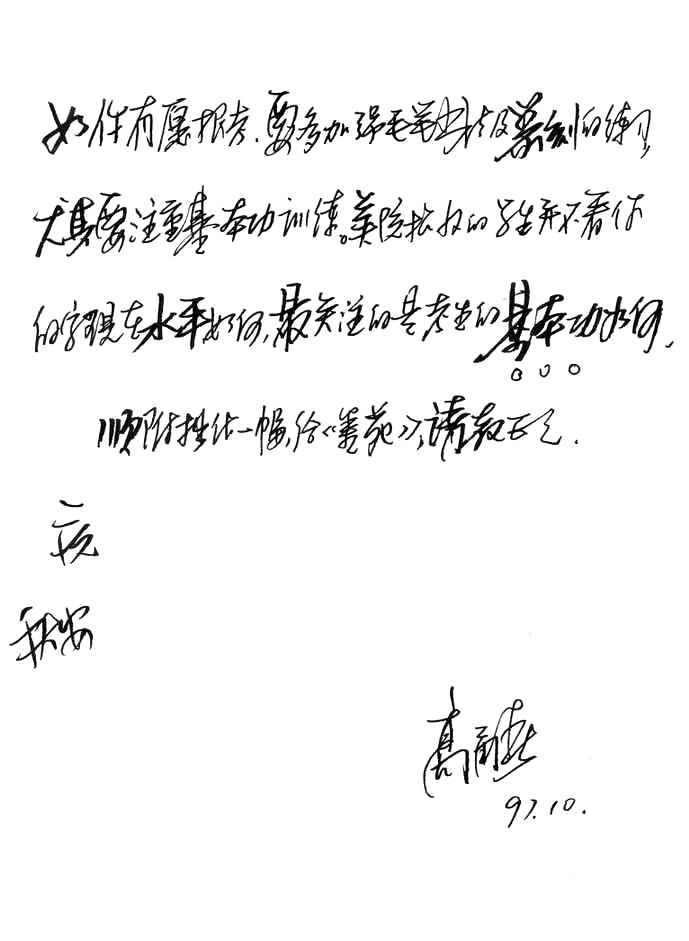 如你有愿报考,要多加强毛笔书法及篆刻的练习,
尤其要注重基本功训练。美院招收的学生并不看你
的字现在水平如何,最关注的是考生的基本功如何,
顺附拙作一幅,给《墨苑》,请教正之.
祝
秋安
高
97.10.